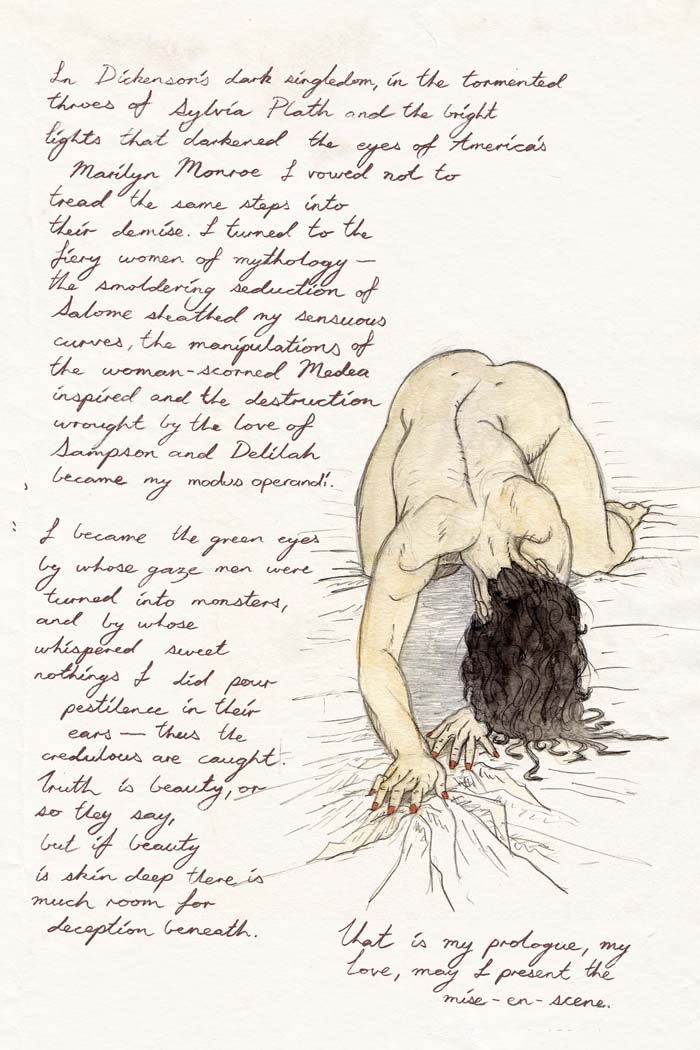 In Dickenson's dark singledom, in the tormented
throes of Sylvia Plath and the bright
lights that darkened the eyes of America's
Marilyn Monroe I vowed not to
tread the same steps into
their demise. I turned to the
fiery women of mythology —
the smoldering seduction of
Salome sheathed my sensuous
curves, the manipulations of
the woman-scorned Medea
inspired and the destruction
wrought by the love of
Sampson and Delilah
became my modus operandi.
I became the green eyes
by whose gaze men were
turned into monsters,
and by whose
whispered sweet
nothings I did pour
pestilence in their
ears — thus the
credulous are caught.
Truth is beauty, or
so they say,
but if beauty
is skin deep there is
much room for
deception beneath.
That is my prologue, my
love, may I present the
mise-en-scene.